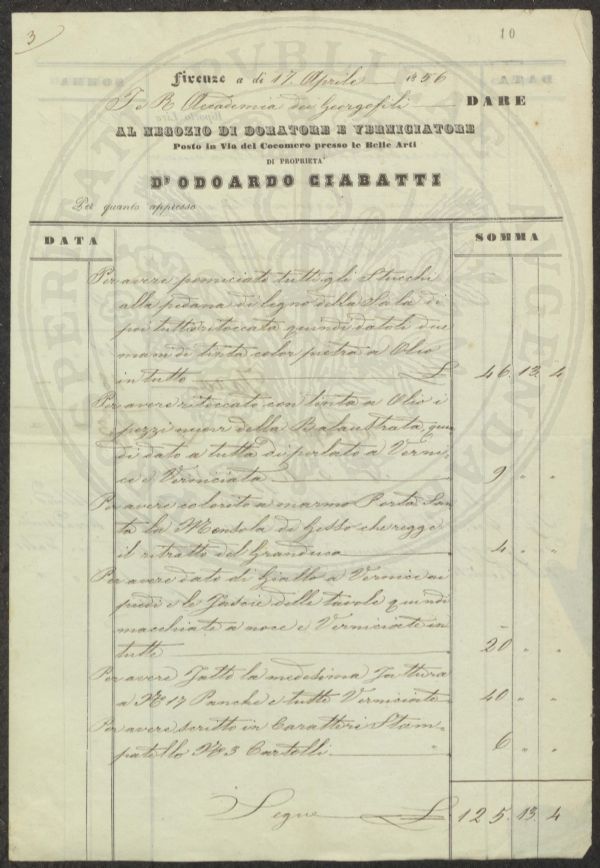 3
10
Firenze a dì 17. Aprile 1856
I e R Accademia dei Georgofili DARE
AL NEGOZIO DI DORATORE E VERNICIATORE
Posto in Via del Cocomero presso le Belle Arti
DI PROPRIETA'
D'ODOARDO CIABATTI
Per quanto appresso
DATA SOMMA
Per avere pomiciato tutti gli Stucchi
alla pedana di legno della Sala di
poi tutto ritoccata quindi datole due
mani di tinta color pietra a Olio
in tutto £ 46. 13. 4
Per avere ritoccato con tinta a Olio i
pezzi nuovi della Balaustrata, quin
di dato a tutta di perlato a Verni-
ce e Verniciata 9 " "
Per avere colorito a marmo Porta San
ta la Mensola di Gesso che regge
il ritratto del Granduca 4 " "
Per avere dato di Giallo a Vernice ai
piedi e le Fascie delle tavole quindi
macchiate a noce e Verniciate in
tutte 20 " "
Per avere Fatto la medesima Fattura
a N° 17 Panche e tutte Verniciate 40 " "
Per avere scritto in Caratteri Stam-
patello N° 3 Cartelli 6 " "
Segue £ 125. 13. 4